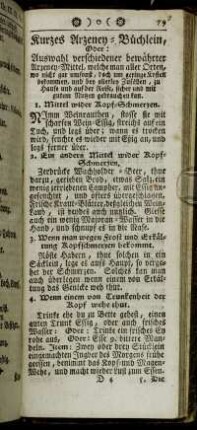 Kurzes Arzeney-Büchlein,
Oder:
Auswahl verschiedener bewährter
Arzeney-Mittel, welche man aller Orten,
wo nicht gar umsonst, doch um geringe Kosten
bekommen, und bey allerley Zufällen, zu
Hause und auf der Reise, sicher und mit
gutem Nutzen gebrauchen kan.
1. Mittel wider Kopf-Schmerzen.
Nimm Weinrauthen, stosse sie mit
scharfen Wein-Essig, streichs auf ein
Tuch, und legs über; wann es trocken
wird, feuchte es wieder mit Essig an, und
legs öfter über.
2. Ein anders Mittel wider Kopf-
Schmerzen.
Zerdrückte Wachholder-Beer, thue
darzu, gerieben Brod, etwas Salz, ein
wenig zerriebenen Campher, mit Essig an-
gefeuchtet, und öfters übergeschlagen.
Frische Kraut-Blätter, desgleichen Wein-
Laub, und ist auch nützlich. Giesse
auch ein wenig Majoran-Wasser in die
Hand, und schnupf es in die Nase.
3. Wenn man wegen Frost und Erkäl-
tung Kopfschmerzen bekommt.
Röste Habern, thue solchen in ein
Säcklein, lege es aufs Haupt, so vergeh-
het der Schmerzen. Solches kan man
auch überlegen wenn einem von Erkäl-
tung das Genick weh thut.
4. Wenn einem von Trunkenheit der
Kopf wehe thut.
Trinke ehe du zu Bette gehest, einen
guten Trunk Essig, oder auch frisches
Wasser: Oder: Trinke ein frisches Ey
rohe aus, Oder: Esse 9. bittere Man-
deln. Item: Zwey oder drey Stücklein
eingemachten Ingber des Morgens frühe
gegessen, benimmt das Kopf- und Magen-
Weh, und macht wieder Lust zum Essen.
D 4